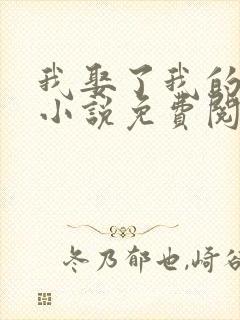 我娶了我的
小说免費閱
冬乃郁也,崎谷